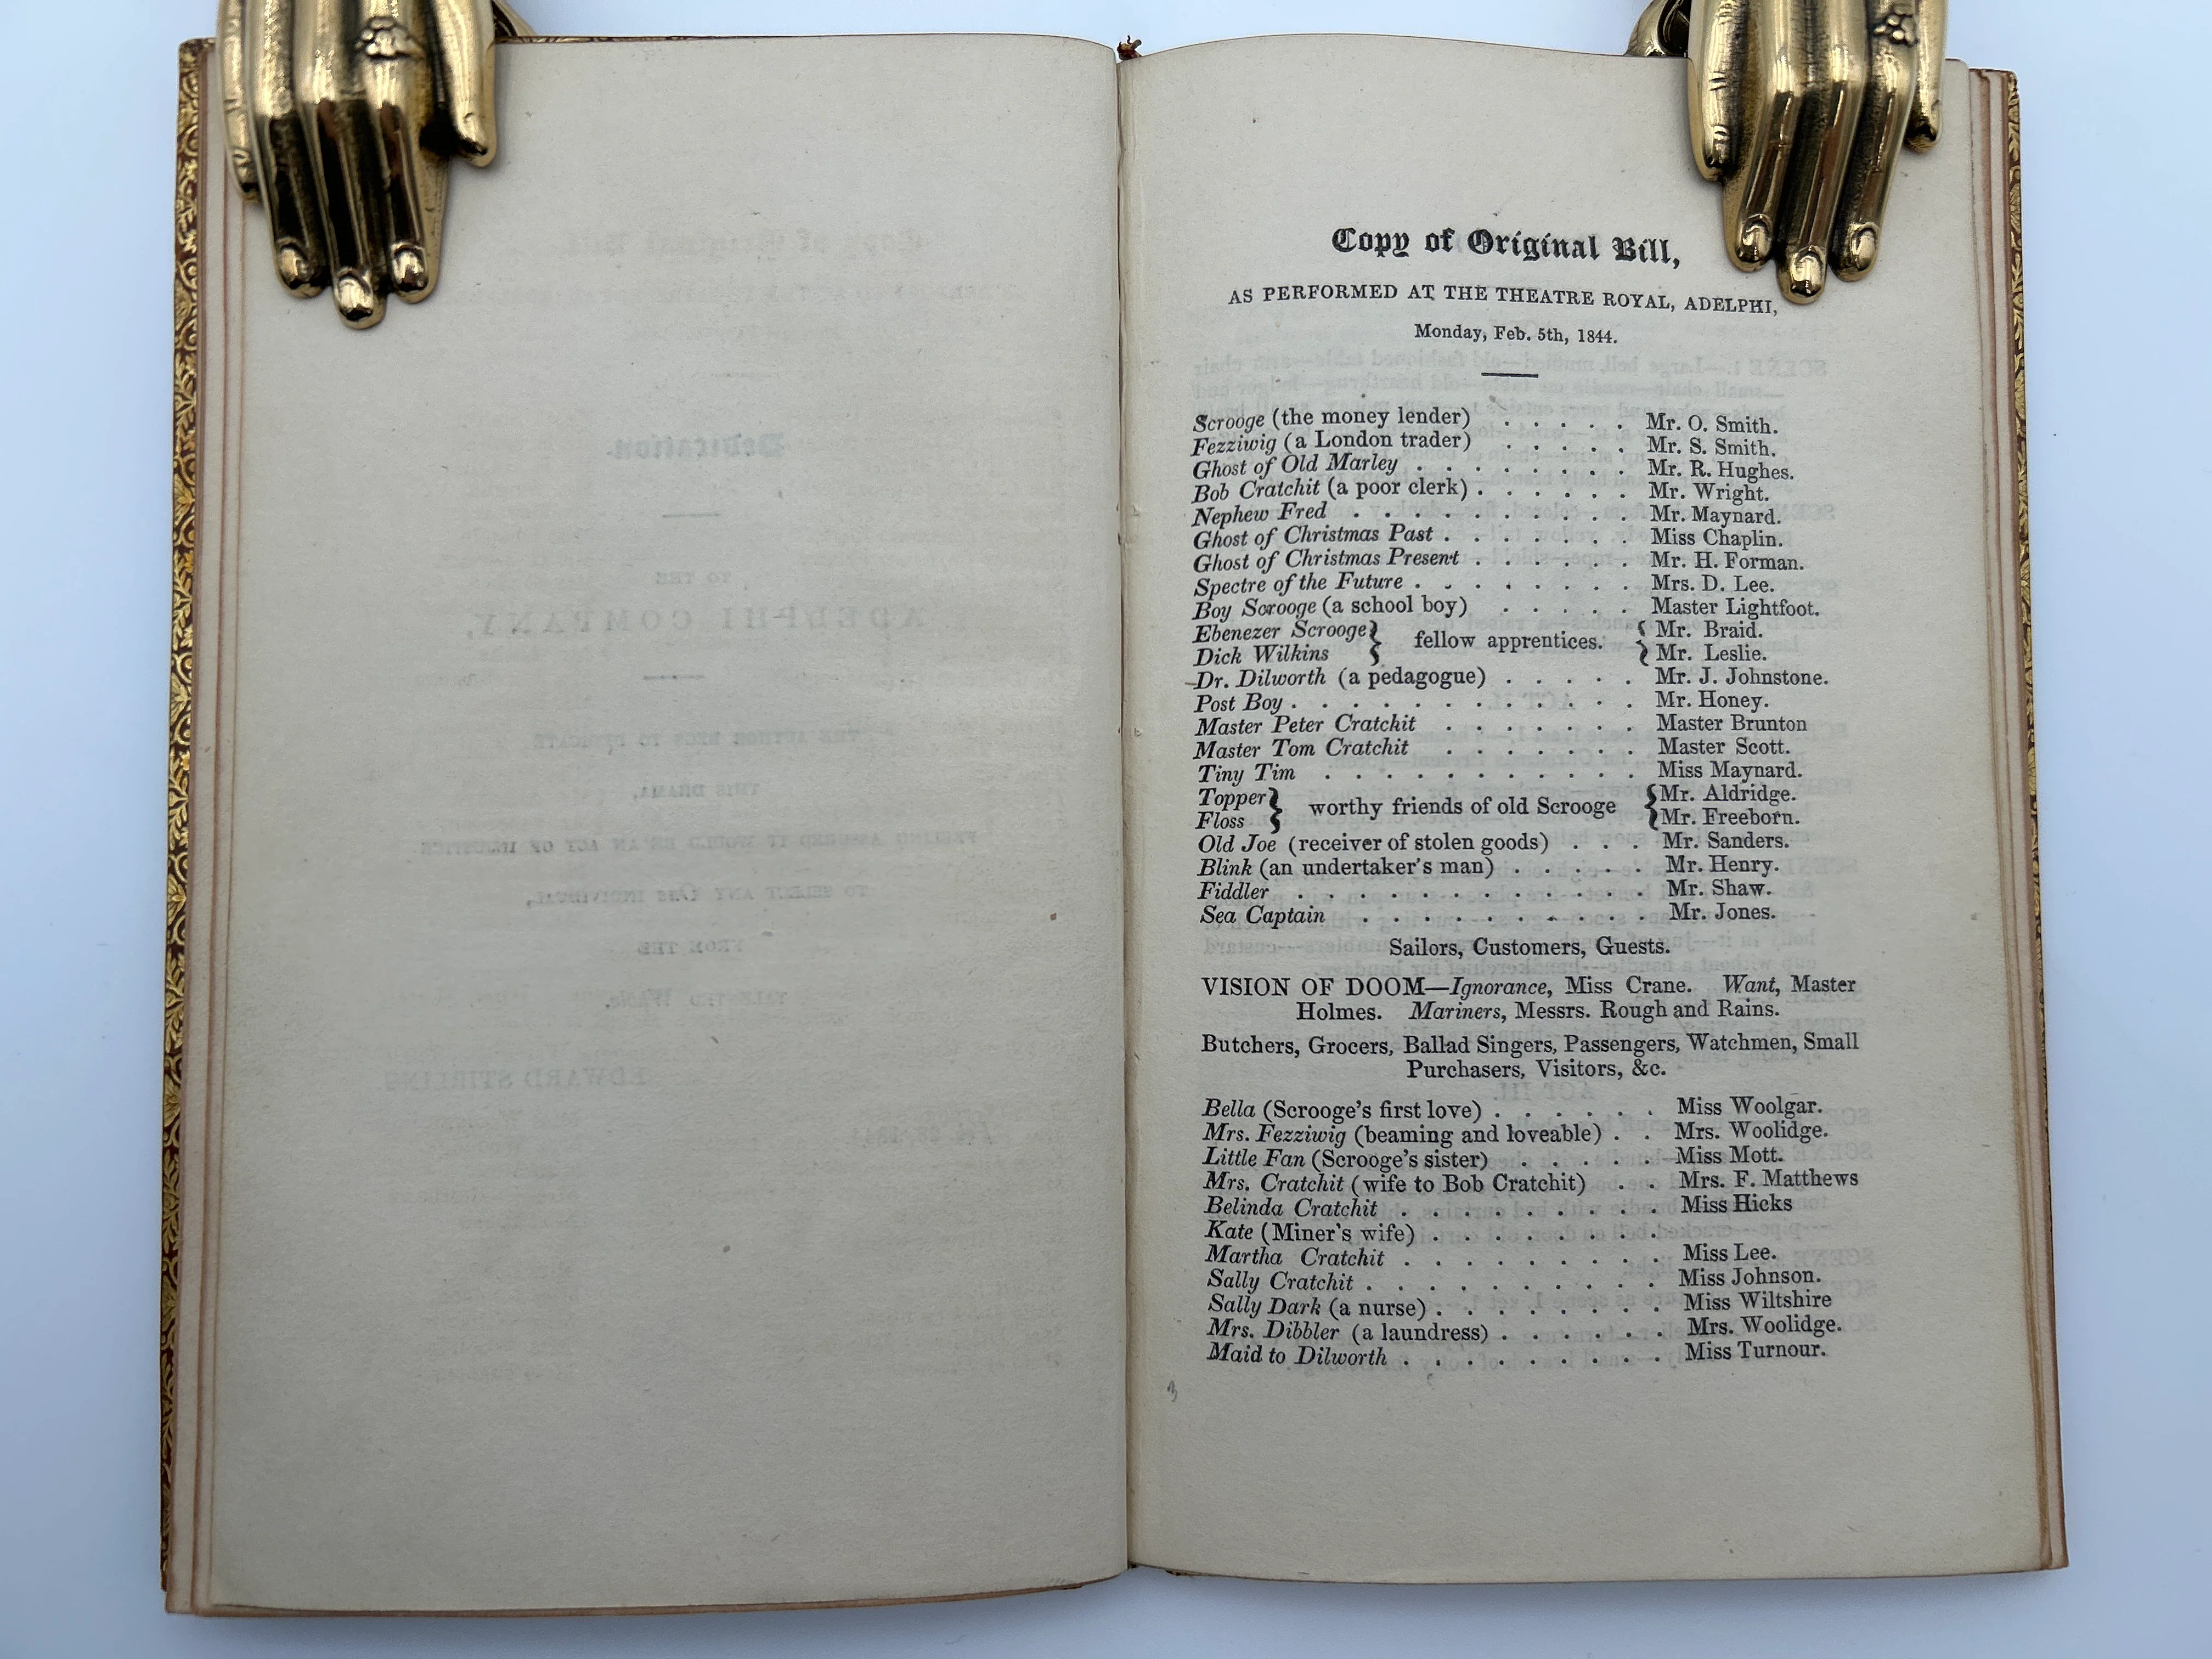 Copy of Original Bill,
AS PERFORMED AT THE THEATRE ROYAL, ADELPHI,
Monday, Feb. 5th, 1844.
Scrooge (the money lender) . . . . . Mr. O. Smith.
Fezziwig (a London trader) . . . . . Mr. S. Smith.
Ghost of Old Marley . . . . . . . . Mr. R. Hughes.
Bob Cratchit (a poor clerk) . . . . . . Mr. Wright.
Nephew Fred . . . . . . . . . . . Mr. Maynard.
Ghost of Christmas Past . . . . . . . Miss Chaplin.
Ghost of Christmas Present . . . . . . Mr. H. Forman.
Spectre of the Future . . . . . . . . Mrs. D. Lee.
Boy Scrooge (a school boy) . . . . . Master Lightfoot.
Ebenezer Scrooge } fellow apprentices. { Mr. Braid.
Dick Wilkins } { Mr. Leslie.
Dr. Dilworth (a pedagogue) . . . . . Mr. J. Johnstone.
Post Boy . . . . . . . . . . . . Mr. Honey.
Master Peter Cratchit . . . . . . . Master Brunton
Master Tom Cratchit . . . . . . . Master Scott.
Tiny Tim . . . . . . . . . . . Miss Maynard.
Topper } worthy friends of old Scrooge { Mr. Aldridge.
Floss } { Mr. Freeborn.
Old Joe (receiver of stolen goods) . . . Mr. Sanders.
Blink (an undertaker's man) . . . . . Mr. Henry.
Fiddler . . . . . . . . . . . . Mr. Shaw.
Sea Captain . . . . . . . . . . Mr. Jones.
Sailors, Customers, Guests.
VISION OF DOOM—Ignorance, Miss Crane. Want, Master
Holmes. Mariners, Messrs. Rough and Rains.
Butchers, Grocers, Ballad Singers, Passengers, Watchmen, Small
Purchasers, Visitors, &c.
Bella (Scrooge's first love) . . . . . . Miss Woolgar.
Mrs. Fezziwig (beaming and loveable) . . Mrs. Woolidge.
Little Fan (Scrooge's sister) . . . . . Miss Mott.
Mrs. Cratchit (wife to Bob Cratchit) . . Mrs. F. Matthews
Belinda Cratchit . . . . . . . . . Miss Hicks
Kate (Miner's wife) . . . . . . . .
Martha Cratchit . . . . . . . . . Miss Lee.
Sally Cratchit . . . . . . . . . . Miss Johnson.
Sally Dark (a nurse) . . . . . . . . Miss Wiltshire
Mrs. Dibbler (a laundress) . . . . . . Mrs. Woolidge.
Maid to Dilworth . . . . . . . . . Miss Turnour.
3